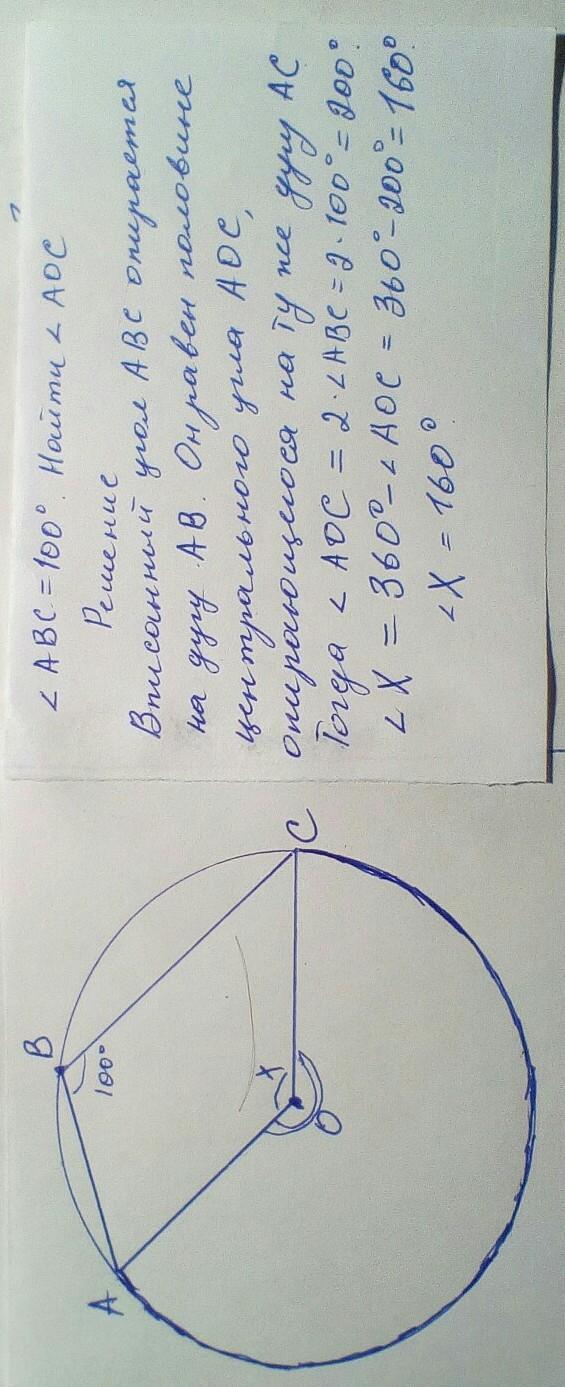 ∠ABC = 100°. Найти ∠AOC
Решение
Вписанный угол ABC опирается
на дугу AB. Он равен половине
центрального угла AOC,
опирающегося на ту же дугу AC
Тогда ∠AOC = 2·∠ABC = 2·100° = 200°
∠X = 360° - ∠AOC = 360° - 200° = 160°
∠X = 160°
A
B
100°
C
X
O